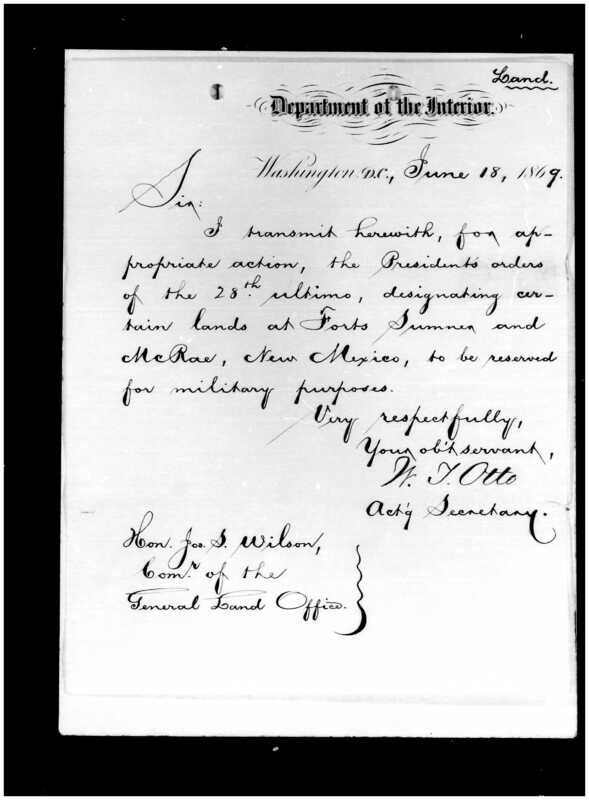 Land.
Department of the Interior.
Washington D.C., June 18, 1869.
Sir:
I transmit herewith, for ap-
propriate action, the Presidents orders
of the 28th ultimo, designating cer-
tain lands at Forts Sumner and
McRae, New Mexico, to be reserved
for military purposes.
Very respectfully,
Your ob't servant,
W. T. Otto
Act'g Secretary.
Hon. Jos. S. Wilson,
Com.r of the
General Land Office.